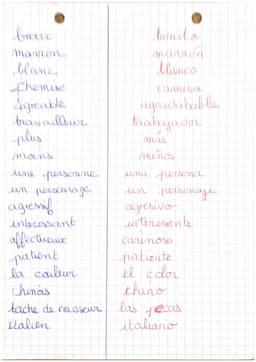 marron marrón
blanc blanco
chemise camisa
Agreable agradabable
travailleur trabajador
plus más
moins meños
une personne una persona
un personage un personaje
agressif agresivo
interessant interesente
affectueux carinoso
patient patiente
la couleur el color
chinois chino
tache de rousseur las pecas
italien italiano